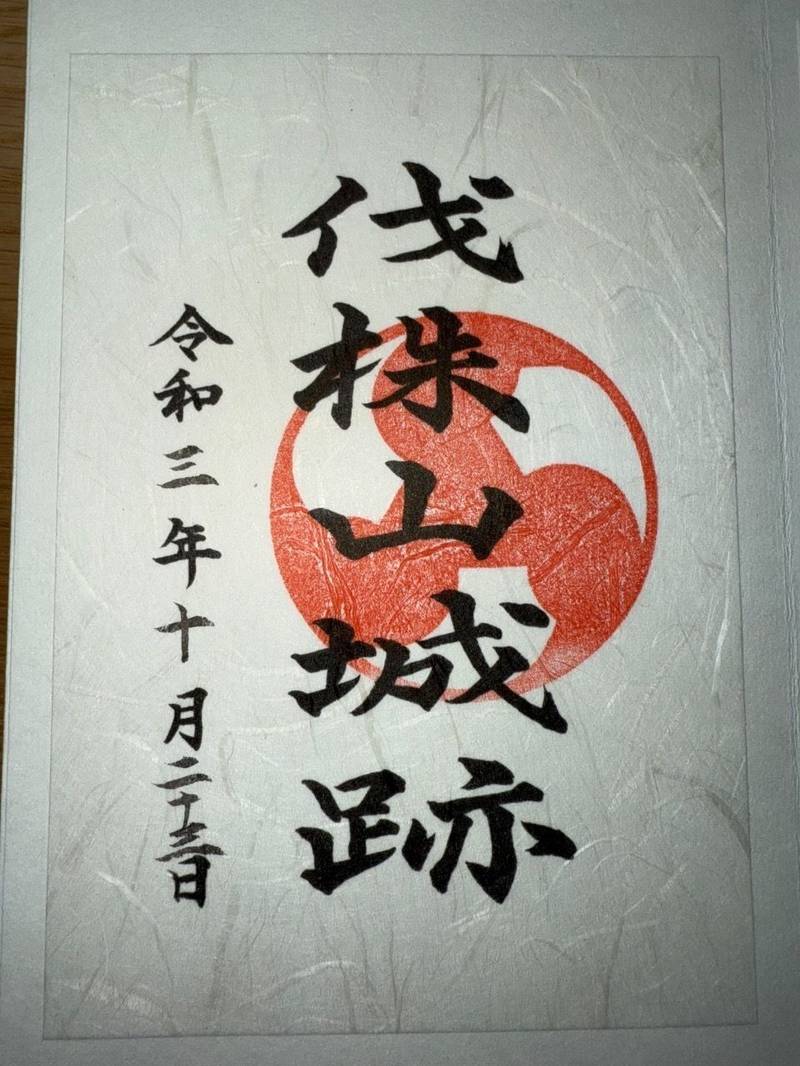 伐株山城跡
令和三年十月二十三日